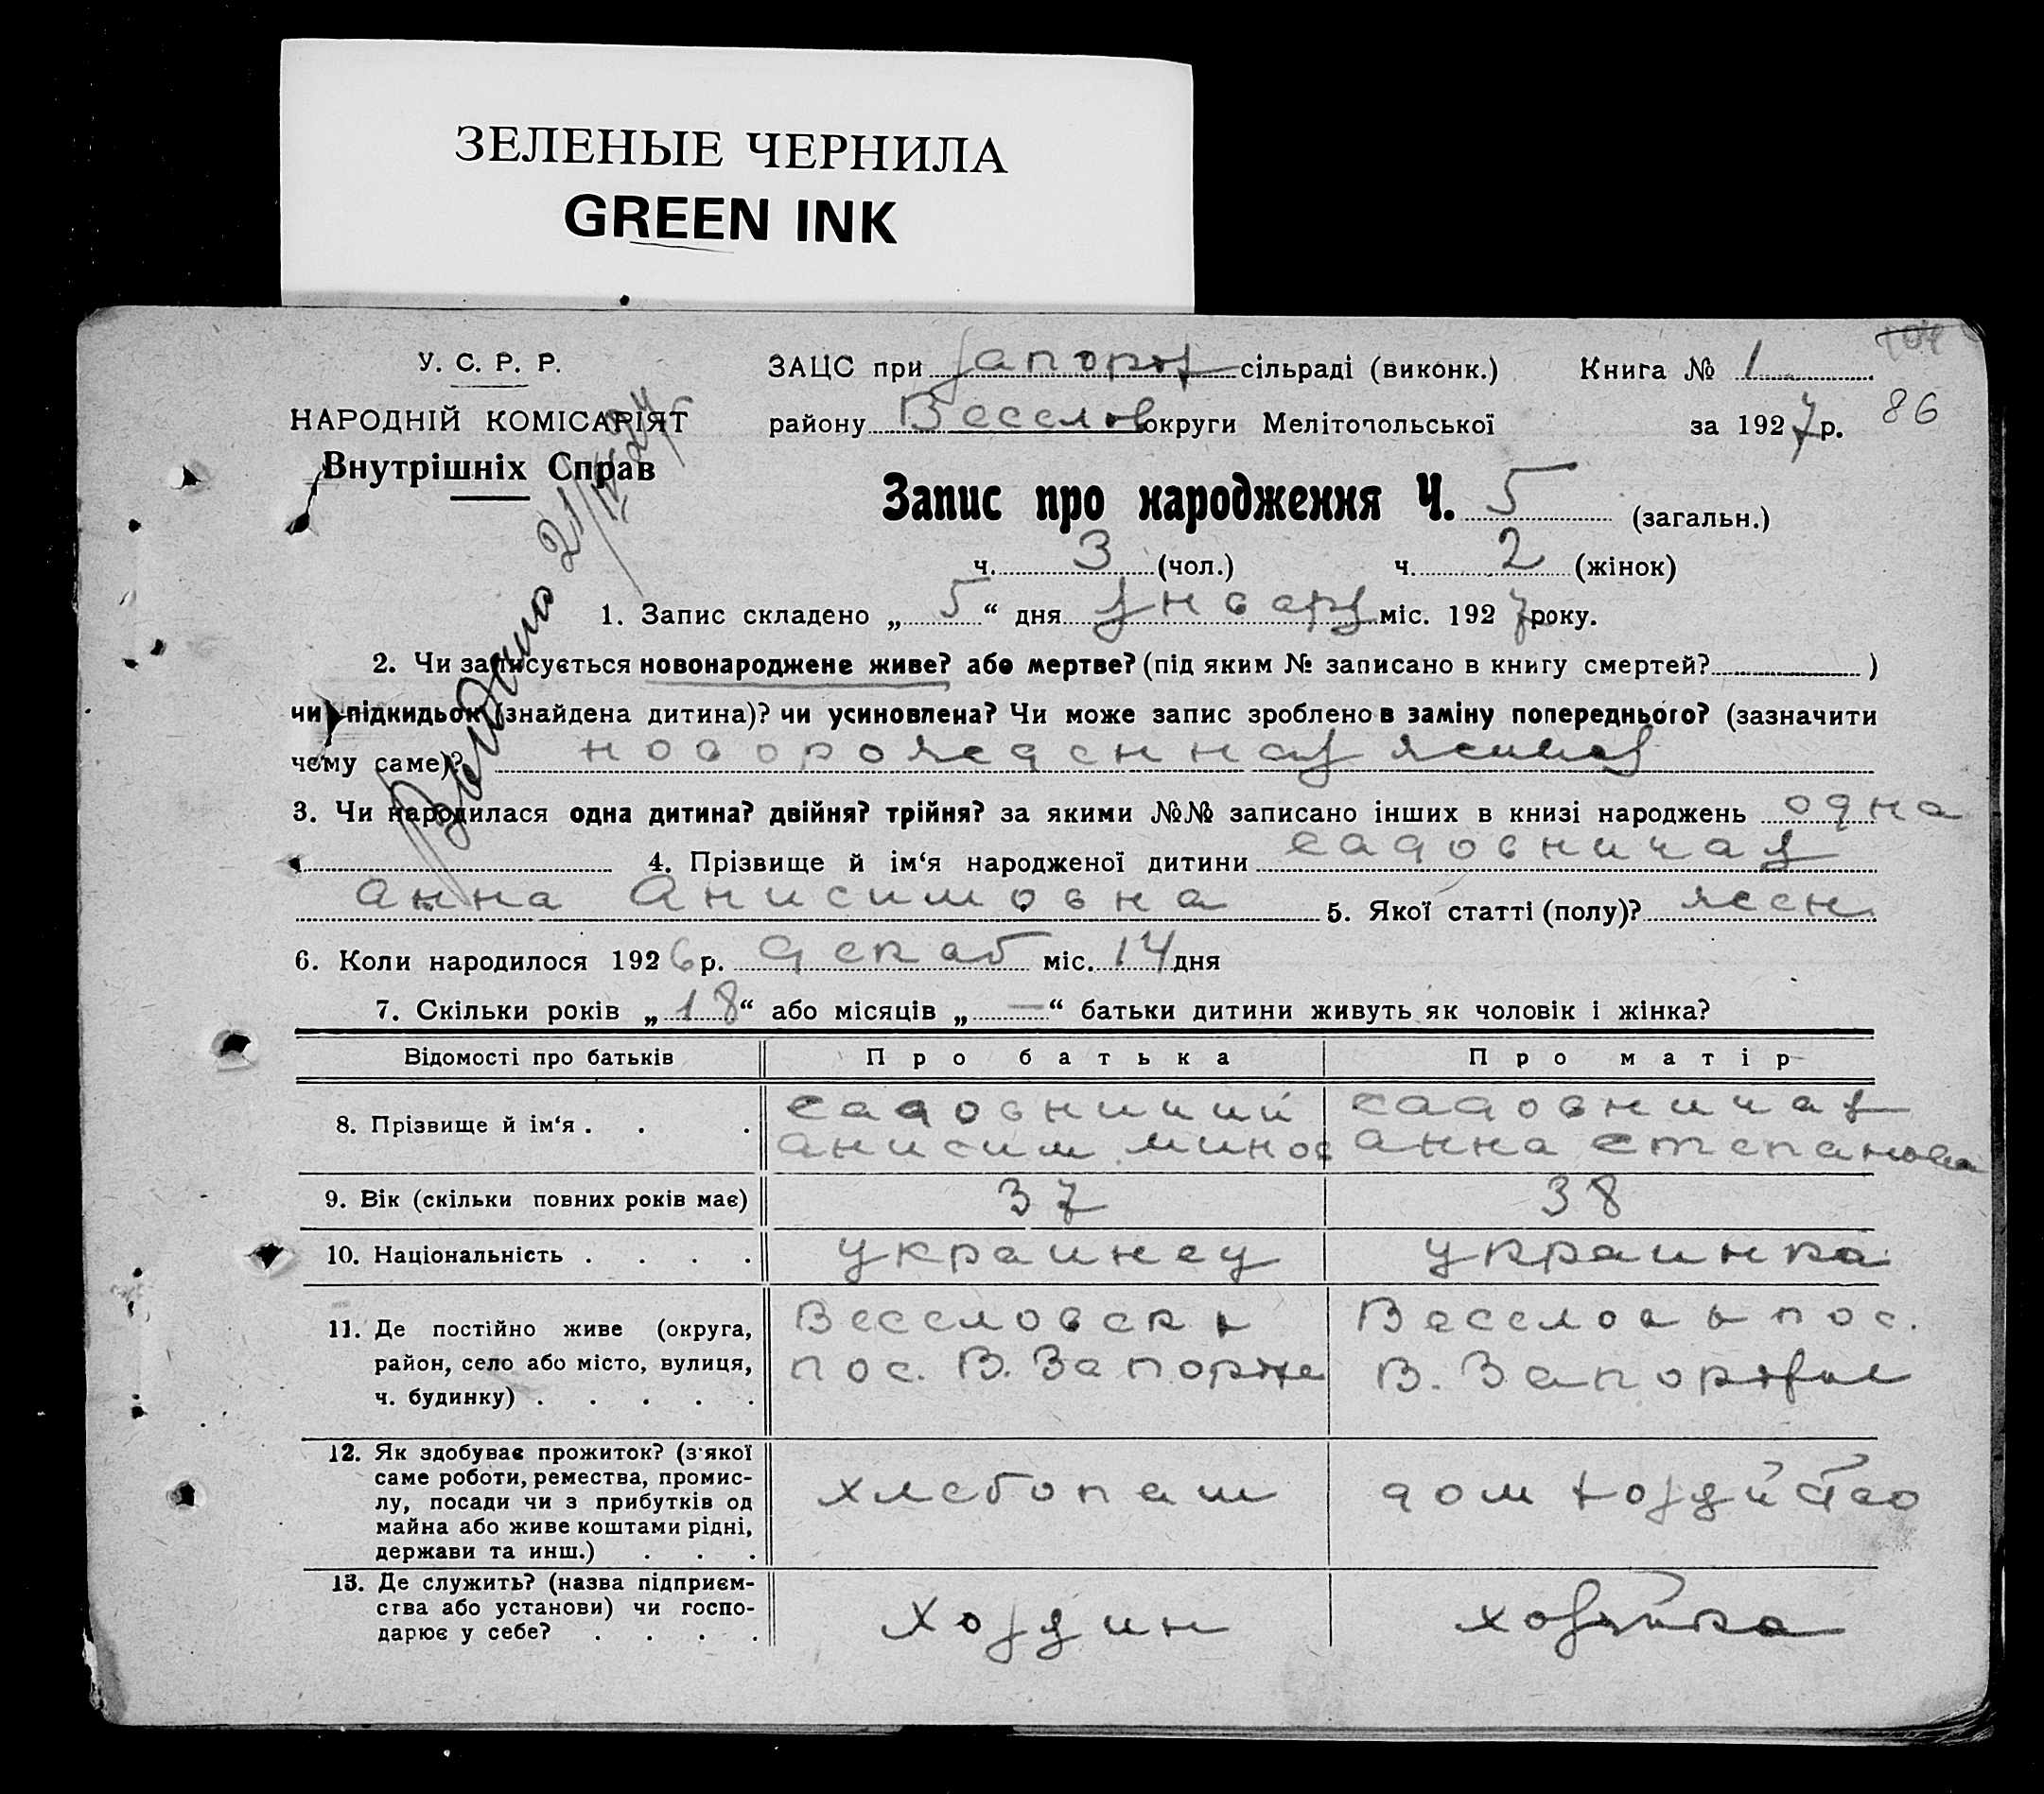 ЗЕЛЕНЫЕ ЧЕРНИЛА
GREEN INK
У. С. Р. Р.
НАРОДНІЙ КОМІСАРІЯТ
Внутрішніх Справ
ЗАЦС при Запорож сільраді (виконк.) Книга № 1
району Веселов округи Мелітопольської за 1927 р. 86
Запис про народження Ч. 5 (загальн.)
ч. 3 (чол.) ч. 2 (жінок)
Видано 21/
1. Запис складено „ 5 “ дня января міс. 1927 року.
2. Чи записується новонароджене живе? або мертве? (під яким № записано в книгу смертей? )
чи підкидьок (знайдена дитина)? чи усиновлена? Чи може запис зроблено в заміну попереднього? (зазначити
чому саме)? новорожденная живая
3. Чи народилася одна дитина? двійня? трійня? за якими №№ записано інших в книзі народжень одна
4. Прізвище й ім‘я народженої дитини Садовничая
Анна Анисимовна 5. Якої статті (полу)? жен
6. Коли народилося 1926 р. декаб міс. 14 дня
7. Скільки років „ 18 “ або місяців „ — “ батьки дитини живуть як чоловік і жінка?
Відомості про батьків Про батька Про матір
8. Прізвище й ім‘я . . . Садовничий Садовничая
Анисим Минов Анна Степановна
9. Вік (скільки повних років має) 37 38
10. Національність . . . . украинец украинка
11. Де постійно живе (округа, Веселовск Весело
район, село або місто, вулиця, пос. В. Запорже пос. В. Запорожье
ч. будинку) . . . . .
12. Як здобуває прожиток? (з'якої
саме роботи, ремества, промис-
лу, посади чи з прибутків од хлебопаш дом хозяйство
майна або живе коштами рідні,
держави та инш.) . . .
13. Де служить? (назва підприєм-
ства або установи) чи госпо- хозяин хозяйка
дарює у себе? . . . .